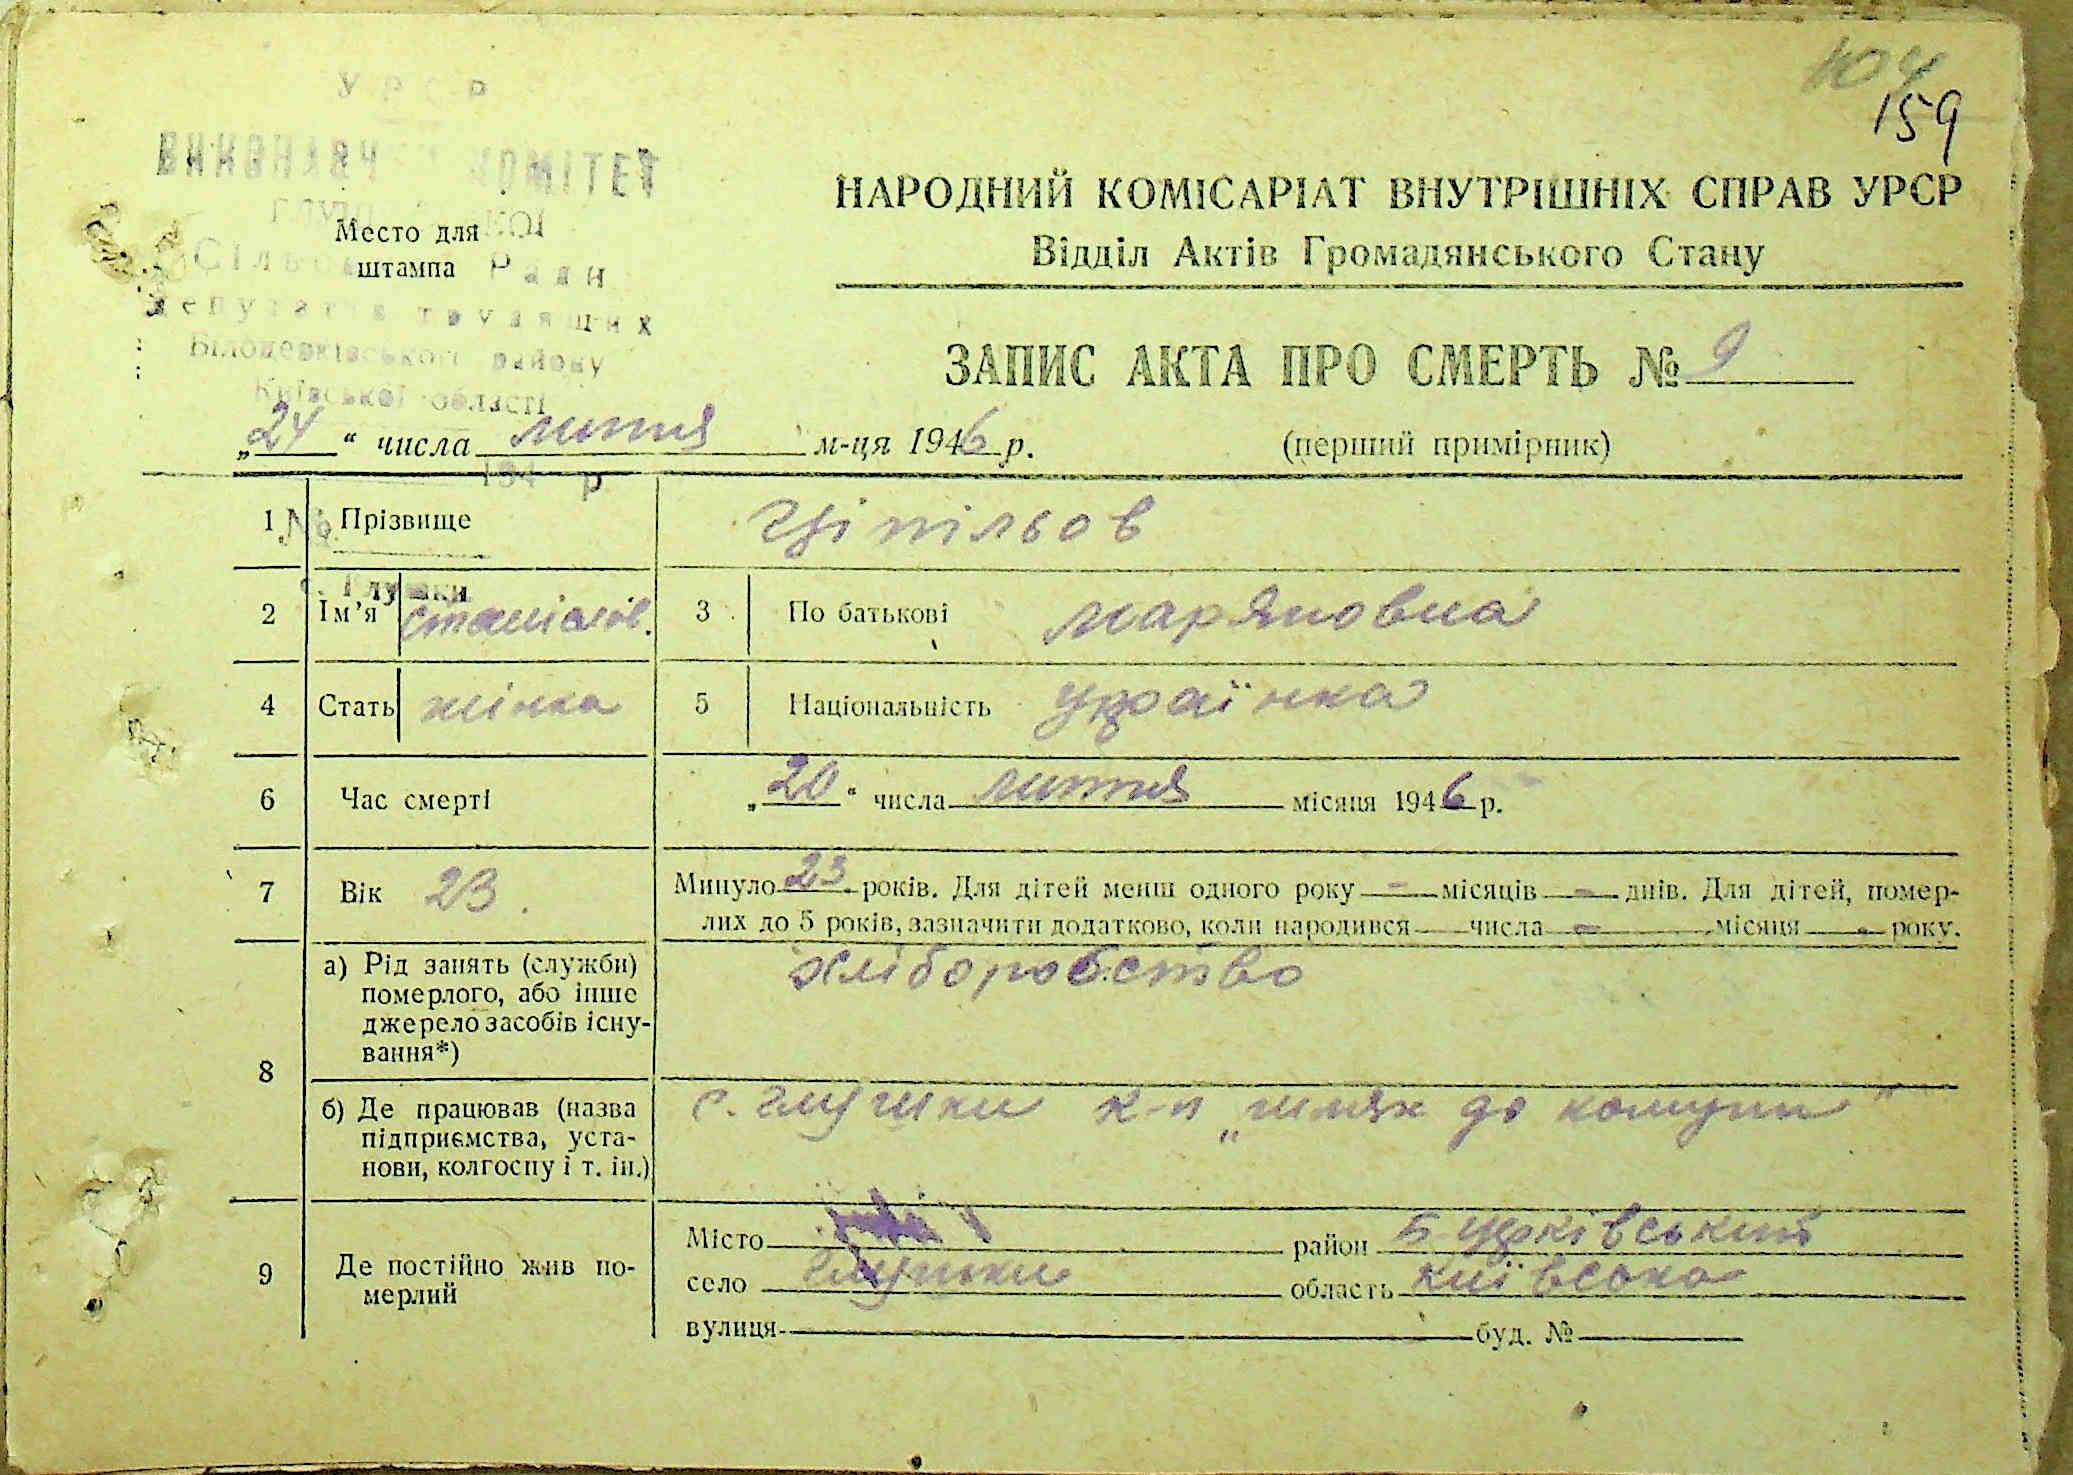 104
159
УРСР
ВИКОНАВЧ КОМІТЕТ
Сільської Ради
депутатів трудящих
Білоцерківського району
Київської області
194 р.
№
с. Глушки
Место для
штампа
НАРОДНИЙ КОМІСАРІАТ ВНУТРІШНІХ СПРАВ УРСР
Відділ Актів Громадянського Стану
ЗАПИС АКТА ПРО СМЕРТЬ № 9
„24“ числа липня м-ця 1946 р.
(перший примірник)
1 Прізвище Ціпільов
2 Ім’я Станіслв. 3 По батькові Маряновна
4 Стать жінка 5 Національність українка
6 Час смерті „20“ числа липня місяця 1946 р.
7 Вік 23. Минуло 23 років. Для дітей менш одного року – місяців – днів. Для дітей, помер-
лих до 5 років, зазначити додатково, коли народився числа – місяця - року.
8 а) Рід занять (служби)
померлого, або інше
джерело засобів існу-
вання*)
хліборобство
б) Де працював (назва
підприємства, уста-
нови, колгоспу і т. ін.)
с. Глушки к-п „шлях до комуни“
9 Де постійно жив по-
мерлий
Місто район Б-церківський
село Глушки область Київська
вулиця буд. №